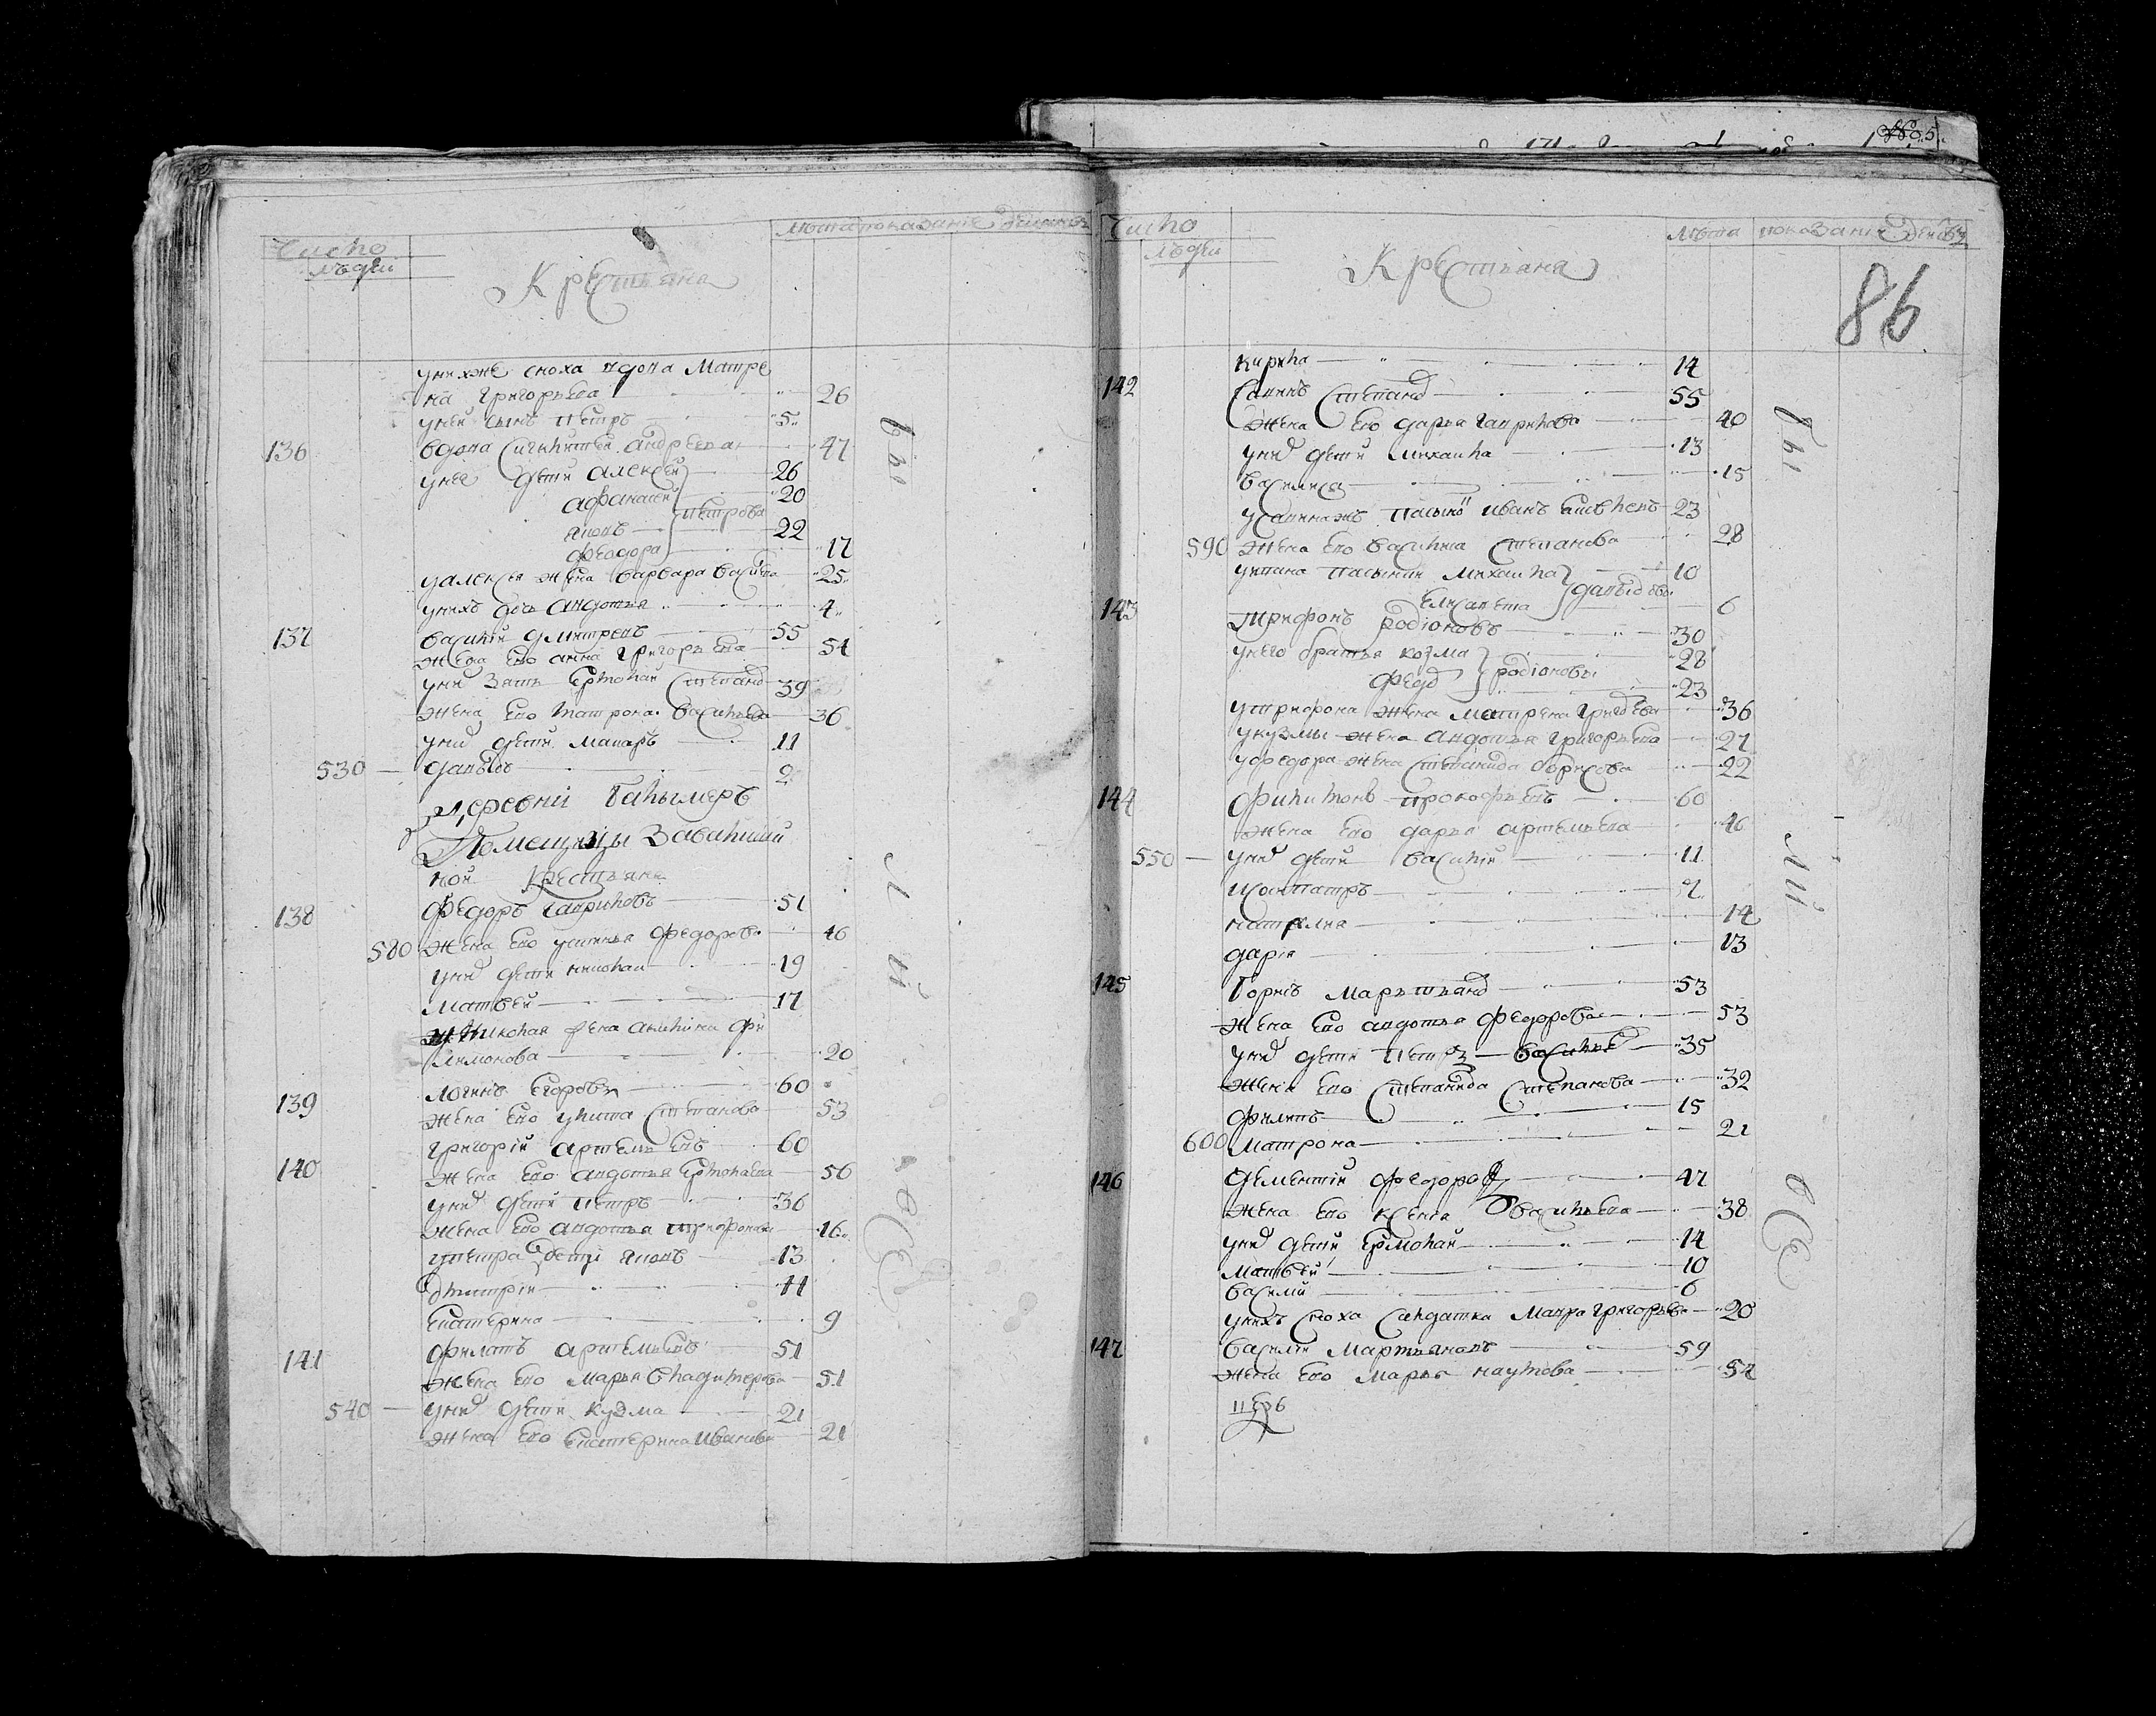 Число
людей
Крестьяна
лета показание действ
унихже сноха вдова Матре
на Григорьева 26
уней сынъ Петръ 5
136 вдова Андреева 47
унее дети Алексей 26
Афанасей 20
Петровы
Яковъ 22
Феодора 17
уалексея жена варвара васильева 25
унихъ дочь авдотья 4
137 василий дмитревъ 55
жена ево анна григорьева 54
уних зять Ермолай Степанов 39
жена ево матрона васильева 36
уних дети макаръ 11
530 давыдъ 2
Деревни
Помещицы
ной крестьяне
138 Федоръ гавриловъ 51
580 жена ево устинья федорова 46
уних дети николай 19
матвей 17
у николая жена акилина фи
лимонова 20
139 логинъ егоровъ 60
жена ево улита Степанова 53
140 григорий артемьевъ 60
жена ево авдотья Ермолаева 56
уних дети петръ 36
жена ево авдотья трифонова 16
упетра дети яковъ 13
дмитрий 11
екатерина 9
141 филатъ артемьевъ 51
жена ево марья владимерова 51
540 уних дети кузма 21
жена ево екатерина иванова 21
бы
л
и
все
Число
людей
Крестьяна
лета показание действ
86
кирила 14
142 Савинъ Степанов 55
жена ево дарья гаврилова 40
уних дети михаила 13
василиса 15
усавинажъ пасынок иванъ 23
590 жена ево василиса Степанова 28
уивана пасынки михаила 10
давыдовы
Елисавета 6
143 Трифонъ родионовъ 30
унего братья козма 28
родионовы
Федор 23
утрифона жена матрена григорьева 36
укузмы жена авдотья григорьева 27
уфедора жена степанида борисова 22
144 филимонъ прокофьевъ 60
жена ево дарья артемьева 46
550 уних дети василий 11
сосипатръ 7
наталиа 14
дария 13
145 Борисъ Мартьянов 53
жена ево авдотья федорова 53
уних дети петръ васильев 35
жена ево Степанида Степанова 32
филипъ 15
600 матрона 21
146 дементий федоров 47
жена ево ксения васильева 38
уних дети ермолай 14
матвей 10
василий 6
унихъ сноха солдатка мавра григорьева 20
147 василий мартьяновъ 59
жена ево марья наумова 52
бы
ли
все